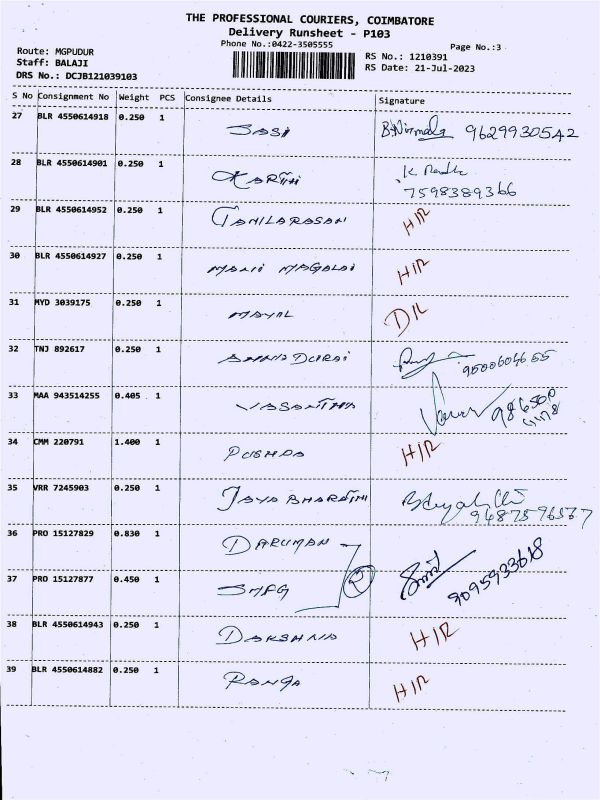 THE PROFESSIONAL COURIERS, COIMBATORE
Delivery Runsheet - P103
Phone No.:0422-3505555
Page No.:3
Route: MGPUDUR
Staff: BALAJI
DRS No.: DCJB121039103
RS No.: 1210391
RS Date: 21-Jul-2023
S No Consignment No Weight PCS Consignee Details Signature
27 BLR 4550614918 0.250 1 SASI B.Nirmala 9629930542
28 BLR 4550614901 0.250 1 KARTHI K
7598389366
29 BLR 4550614952 0.250 1 TAMILARASAN H/R
30 BLR 4550614927 0.250 1 MANI MAGALAI H/R
31 MYD 3039175 0.250 1 MAYAL D/L
32 TNJ 892617 0.250 1 DURAI 9500604655
33 MAA 943514255 0.405 1 VASANTHA
34 CMM 220791 1.400 1 PUSHPA H/R
35 VRR 7245903 0.250 1 JAYA BHARATHI
36 PRO 15127829 0.830 1 DARUMAN
37 PRO 15127877 0.450 1 2 9095933618
38 BLR 4550614943 0.250 1 DAKSHNA H/R
39 BLR 4550614882 0.250 1 RANGA H/R